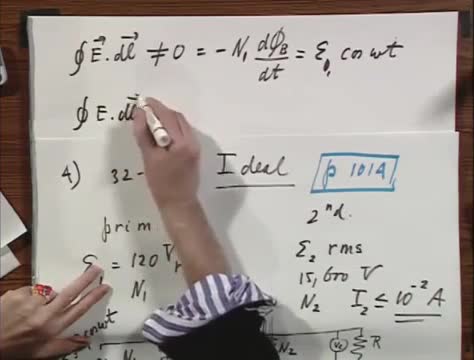 ∮ E⃗ . dl⃗ ≠ 0 = - N₁ dϕ_B/dt = Ɛ₁ cos ωt
∮ E . dl⃗
4) 32- Ideal p 1014
prim. 2ⁿd.
= 120 V Ɛ₂ rms
15,600 V
N₁ N₂ I₂ ≤ 10⁻² A
cos ωt
N₂ V₂ R